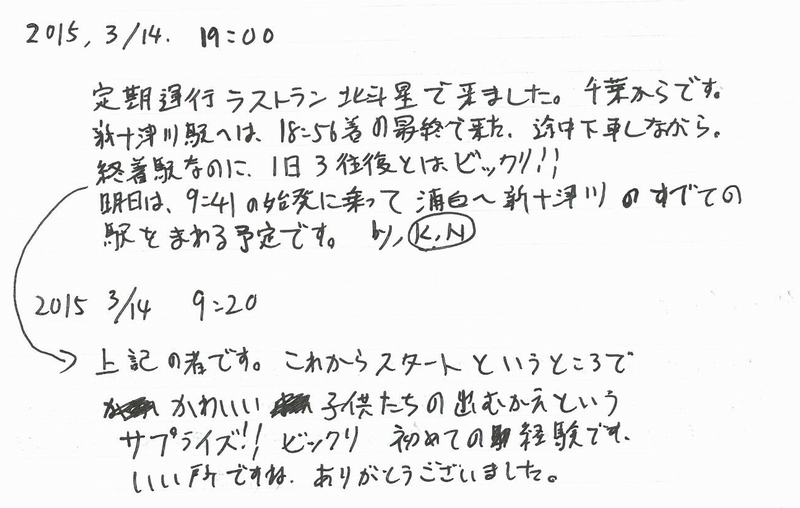 2015, 3/14. 19:00
定期運行ラストラン北斗星で来ました。千葉からです。
新十津川駅へは、18:56着の最終で来た、途中下車しながら。
終着駅なのに、1日3往復とはビックリ!!
明日は、9:41の始発に乗って浦臼〜新十津川のすべての
駅をまわる予定です。 by, K.N
2015 3/14 9:20
上記の者です。これからスタートというところで
かわいい子供たちの出むかえという
サプライズ!! ビックリ 初めての経験です、
いい所ですね、ありがとうございました。